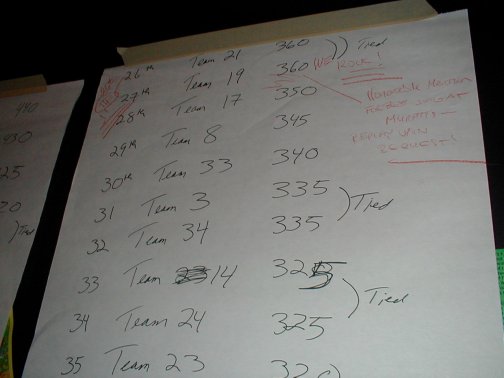 440
930
25
20
) Tied
26th Team 21 360 )) Tied
27th Team 19 360 (WE ROCK!
28th Team 17 350
29th Team 8 345
30th Team 33 340
31 Team 3 335
32 Team 34 335 ) Tied
33 Team 14 325
34 Team 24 325 ) Tied
35 Team 23 320)
Honorable Mention
REPLAY UPON
REQUEST!